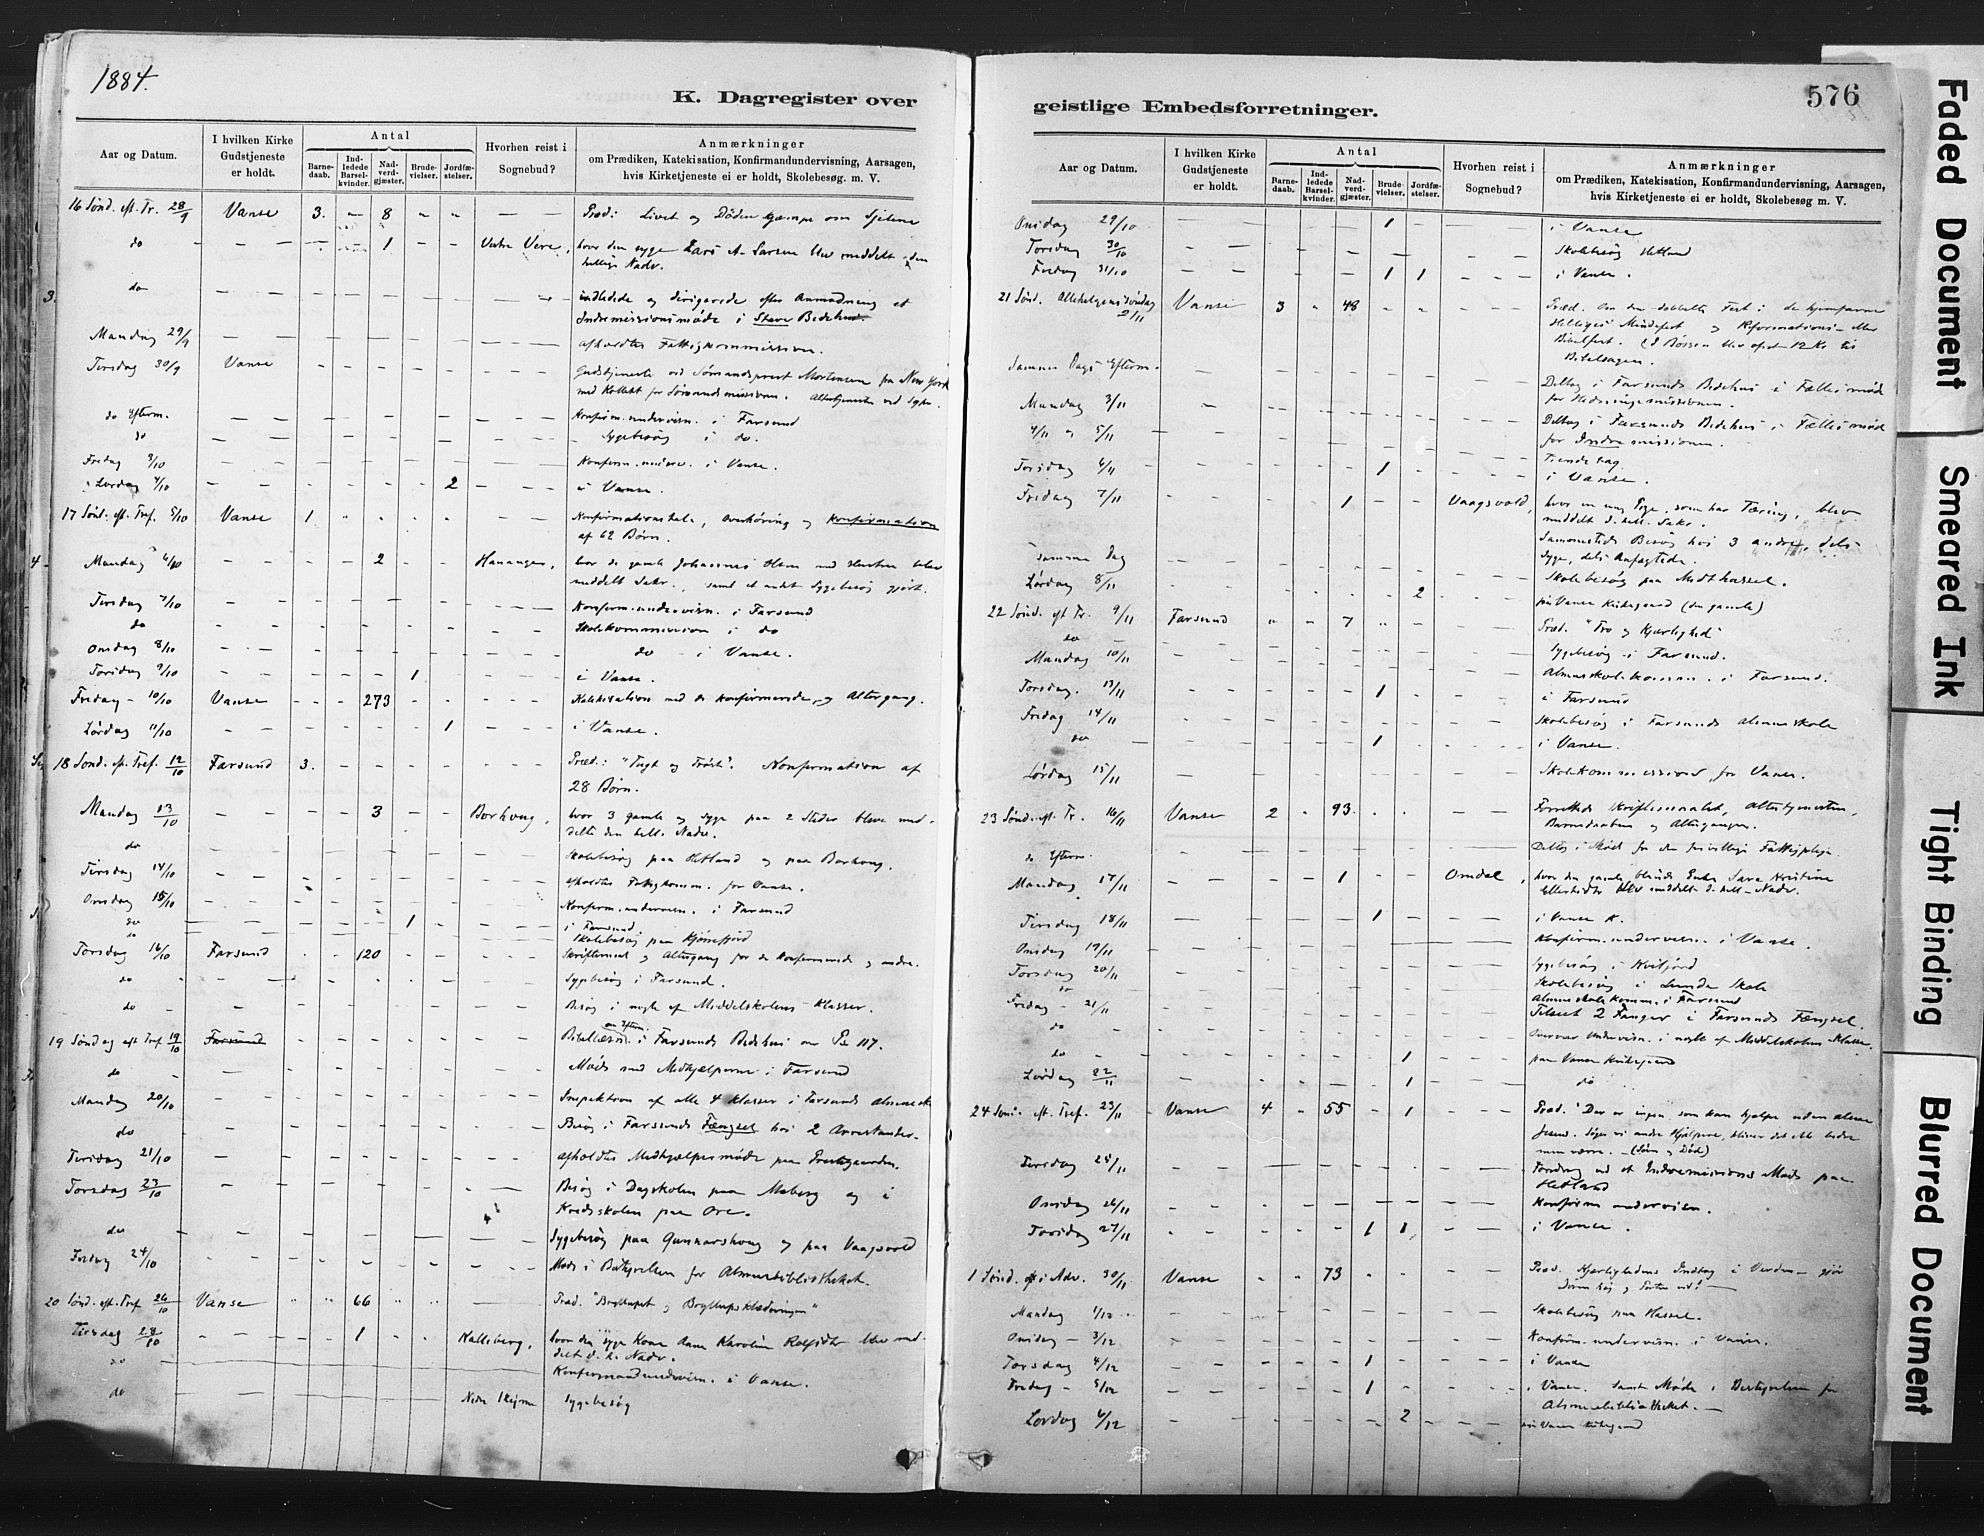 1884.
K. Dagregister over
Aar og Datum.
I hvilken Kirke Gudstjeneste er holdt.
Antal
Barne-daab.
Ind-ledede Barsel-kvinder.
Nad-verd-gjæster.
Brude-vielser.
Jordfæ-stelser.
Hvorhen reist i Sognebud?
Anmærkninger
om Prædiken, Katekisation, Konfirmandundervisning, Aarsagen,
hvis Kirketjeneste ei er holdt, Skolebesøg. m. V.
16 Sønd. eft. Tr. 28/9 Vanse 3. - 8 Præd: Livet og Døden kjæmpe om Sjelene
do 1 Vestre Vere, hvor den syge Lars A. Larsen blev meddelt den
hellige Nadv.
3.
do indledede og dirigerede efter Anmodning et
Indremissionsmøde i Stave Bedehus.
Mandag 29/9 afholdtes Fattigkommission.
Tirsdag 30/9 Vanse Gudstjeneste ved Sømandsprest Mortensen fra New York
med Kollekt for Sømandsmissionen. Altertjenesten ved
do Efterm. Konfirm.underv. i Farsund
do Sygebesøg i do.
Fredag 3/10 Konfirm.underv. i Vanse.
Lørdag 4/10 2 i Vanse.
17 Sønd. eft. Tref. 5/10 Vanse 1 Konfirmationstale, Overhøring og Konfirmation
af 62 Børn.
4
Mandag 6/10 2 Hananger, hvor de gamle Johannes Olsen med Hustru blev
meddelt Sakr., samt et andet Sygebesøg gjort.
Tirsdag 7/10 Konfirm.underv. i Farsund
do Skolekommission i do
Onsdag 8/10 do i Vanse.
Torsdag 9/10 1 i Vanse.
Fredag 10/10 Vanse 273 Katekisation med de Konfirmerede, og Altergang.
Lørdag 11/10 1 i Vanse.
18 Sønd. eft. Tref. 12/10 Farsund 3. Præd.: "Tugt og Trøst". Konfirmation af
28 Børn.
Mandag 13/10 3 Borhoug, hvor 3 gamle og syge paa 2 Steder bleve med-
delte den hell. Nadv.
do Skolebesøg paa Hetland og paa Borhoug.
Tirsdag 14/10 afholdtes Fattigkomm. for Vanse.
Onsdag 15/10 Konfirm.underv. i Farsund
do 1 i Farsund
do Skolebesøg paa Kjørrefjord
Torsdag 16/10 Farsund 120 Skriftemaal og Altergang for de Konfirmerede og andre.
do Sygebesøg i Farsund.
do Besøg i nogle af Middelskolens Klasser.
19 Søndag eft. Tref 19/10 Farsund Bibellæsn. om Efterm. i Farsunds Bedehus over Ps 117.
do Møde med Medhjælperne i Farsund
Mandag 20/10 Inspektion af alle 4 klasser i Farsunds Almuesk
do Besøg i Farsunds Fængsel hos 2 Arrestanter.
Tirsdag 21/10 afholdtes Medhjælpermøde paa Prestegaarden.
Torsdag 23/10 Besøg i Dagskolen paa Maberg og i
Kredsskolen paa Ore.
do Sygebesøg paa Gunnarshoug og paa Vaagsvold
Fredag 24/10 Møde i Bestyrelsen for Almuebibliotheket.
20 Sønd. eft. Tref 26/10 Vanse 66 Præd. "Brylluppet og Bryllupsklædningen"
Tirsdag 28/10 1 Kalleberg, hvor den syge Kone Anne Karoline Rolfsdtr blev med-
delt d. h. Nadv.
do Konfirmandunderv. i Vanse.
do Nedre Skeime Sygebesøg
geistlige Embedsforretninger.
576
Aar og Datum.
I hvilken Kirke Gudstjeneste er holdt.
Antal
Barne-daab.
Ind-ledede Barsel-kvinder.
Nad-verd-gjæster.
Brude-vielser.
Jordfæ-stelser.
Hvorhen reist i Sognebud?
Anmærkninger
om Prædiken, Katekisation, Konfirmandundervisning, Aarsagen,
hvis Kirketjeneste ei er holdt, Skolebesøg m. V.
Onsdag 29/10 1 i Vanse
Torsdag 30/10 Skolebesøg Hetland
Fredag 31/10 1 1 i Vanse.
21 Sønd. Allehelgens Søndag 2/11 Vanse 3 48 Præd. Om den dobbelte Fest: de hjemfarne
Helliges Mindefest og Reformations- eller
Bibelfest. (I Bøssen blev ofret 12 Kr til
Bibelsagen.
Samme Dags Efterm. Deltog i Farsunds Bedehus i Fællesmøde
for Hedningemissionen.
Mandag 3/11
4/11 og 5/11 Deltog i Farsunds Bedehus i Fællesmøde
for Indremissionen.
Torsdag 6/11 1 i Vanse.
Fredag 7/11 1 Vaagsvold, hvor en ung Pige, som har Tæring, blev
meddelt d. hell. Sakr.
samme Dag Sammesteds Besøg hos 3 andre, dels
Syge, dels Anfægtede.
Lørdag 8/11 Skolebesøg paa Midthassel.
2 paa Vanse Kirkegaard (den gamle)
22 Sønd. eft Tr. 9/11 Farsund 7 Præd. "Tro og Kjærlighed"
do Sygebesøg i Farsund.
Mandag 10/11 Almueskolekomm. i Farsund.
Torsdag 13/11 1 i Farsund
Fredag 14/11 Skolebesøg i Farsunds Almueskole
do 1 i Vanse.
Lørdag 15/11 Skolekommission for Vanse.
23 Sønd. eft. Tr. 16/11 Vanse 2 93. Forrettede Skriftemaalet, Altertjenesten,
Barnedaaben og Altergangen.
do Efterm. Deltog i Møde for den frivillige Fattigpleje.
Mandag 17/11 1 Omdal, hvor den gamle, blinde Enke Sara Kristine
Ellertsdtr blev meddelt d. hell. Nadv.
Tirsdag 18/11 1 i Vanse K.
Onsdag 19/11 Konfirm.underv. i Vanse.
Torsdag 20/11 Sygebesøg i Kviljord
do Skolebesøg i Lunde Skole
Fredag 21/11 Almueskolekomm. i Farsund
Tilseet 2 Fanger i Farsunds Fængsel.
do Overvar Underv. i nogle af Middelskolens Klasser.
do 1 paa Vanse Kirkegaard
Lørdag 22/11 1 do
24 Sønd. eft. Tref. 23/11 Vanse 4 55 1 Præd. "Der er ingen, som kan hjælpe uden alene
Jesus. Søger vi andre Hjælpere, bliver det ikke bedre
men værre. - (Søn og Død)
Tirsdag 25/11 Foredrag ved et Indremissions Møde paa
Hetland
Onsdag 26/11 Konfirm underv.
Torsdag 27/11 1 1 i Vanse.
1 Sønd. i Adv. 30/11 Vanse 73 Præd. Kjærlighedens Indtog i Verden - gjør
Døren høj og Porten vid! -
Mandag 1/12 Skolebesøg paa Hassel.
Onsdag 3/12 Konfirm.underv. i Vanse.
Torsdag 4/12 1 i Vanse
Fredag 5/12 1 i Vanse. Samt Møde i Bestyrelsen for
Almuebibliotheket. -
Lørdag 6/12 2 paa Vanse Kirkegaard
Faded Document
Smeared Ink
Tight Binding
Blurred Document